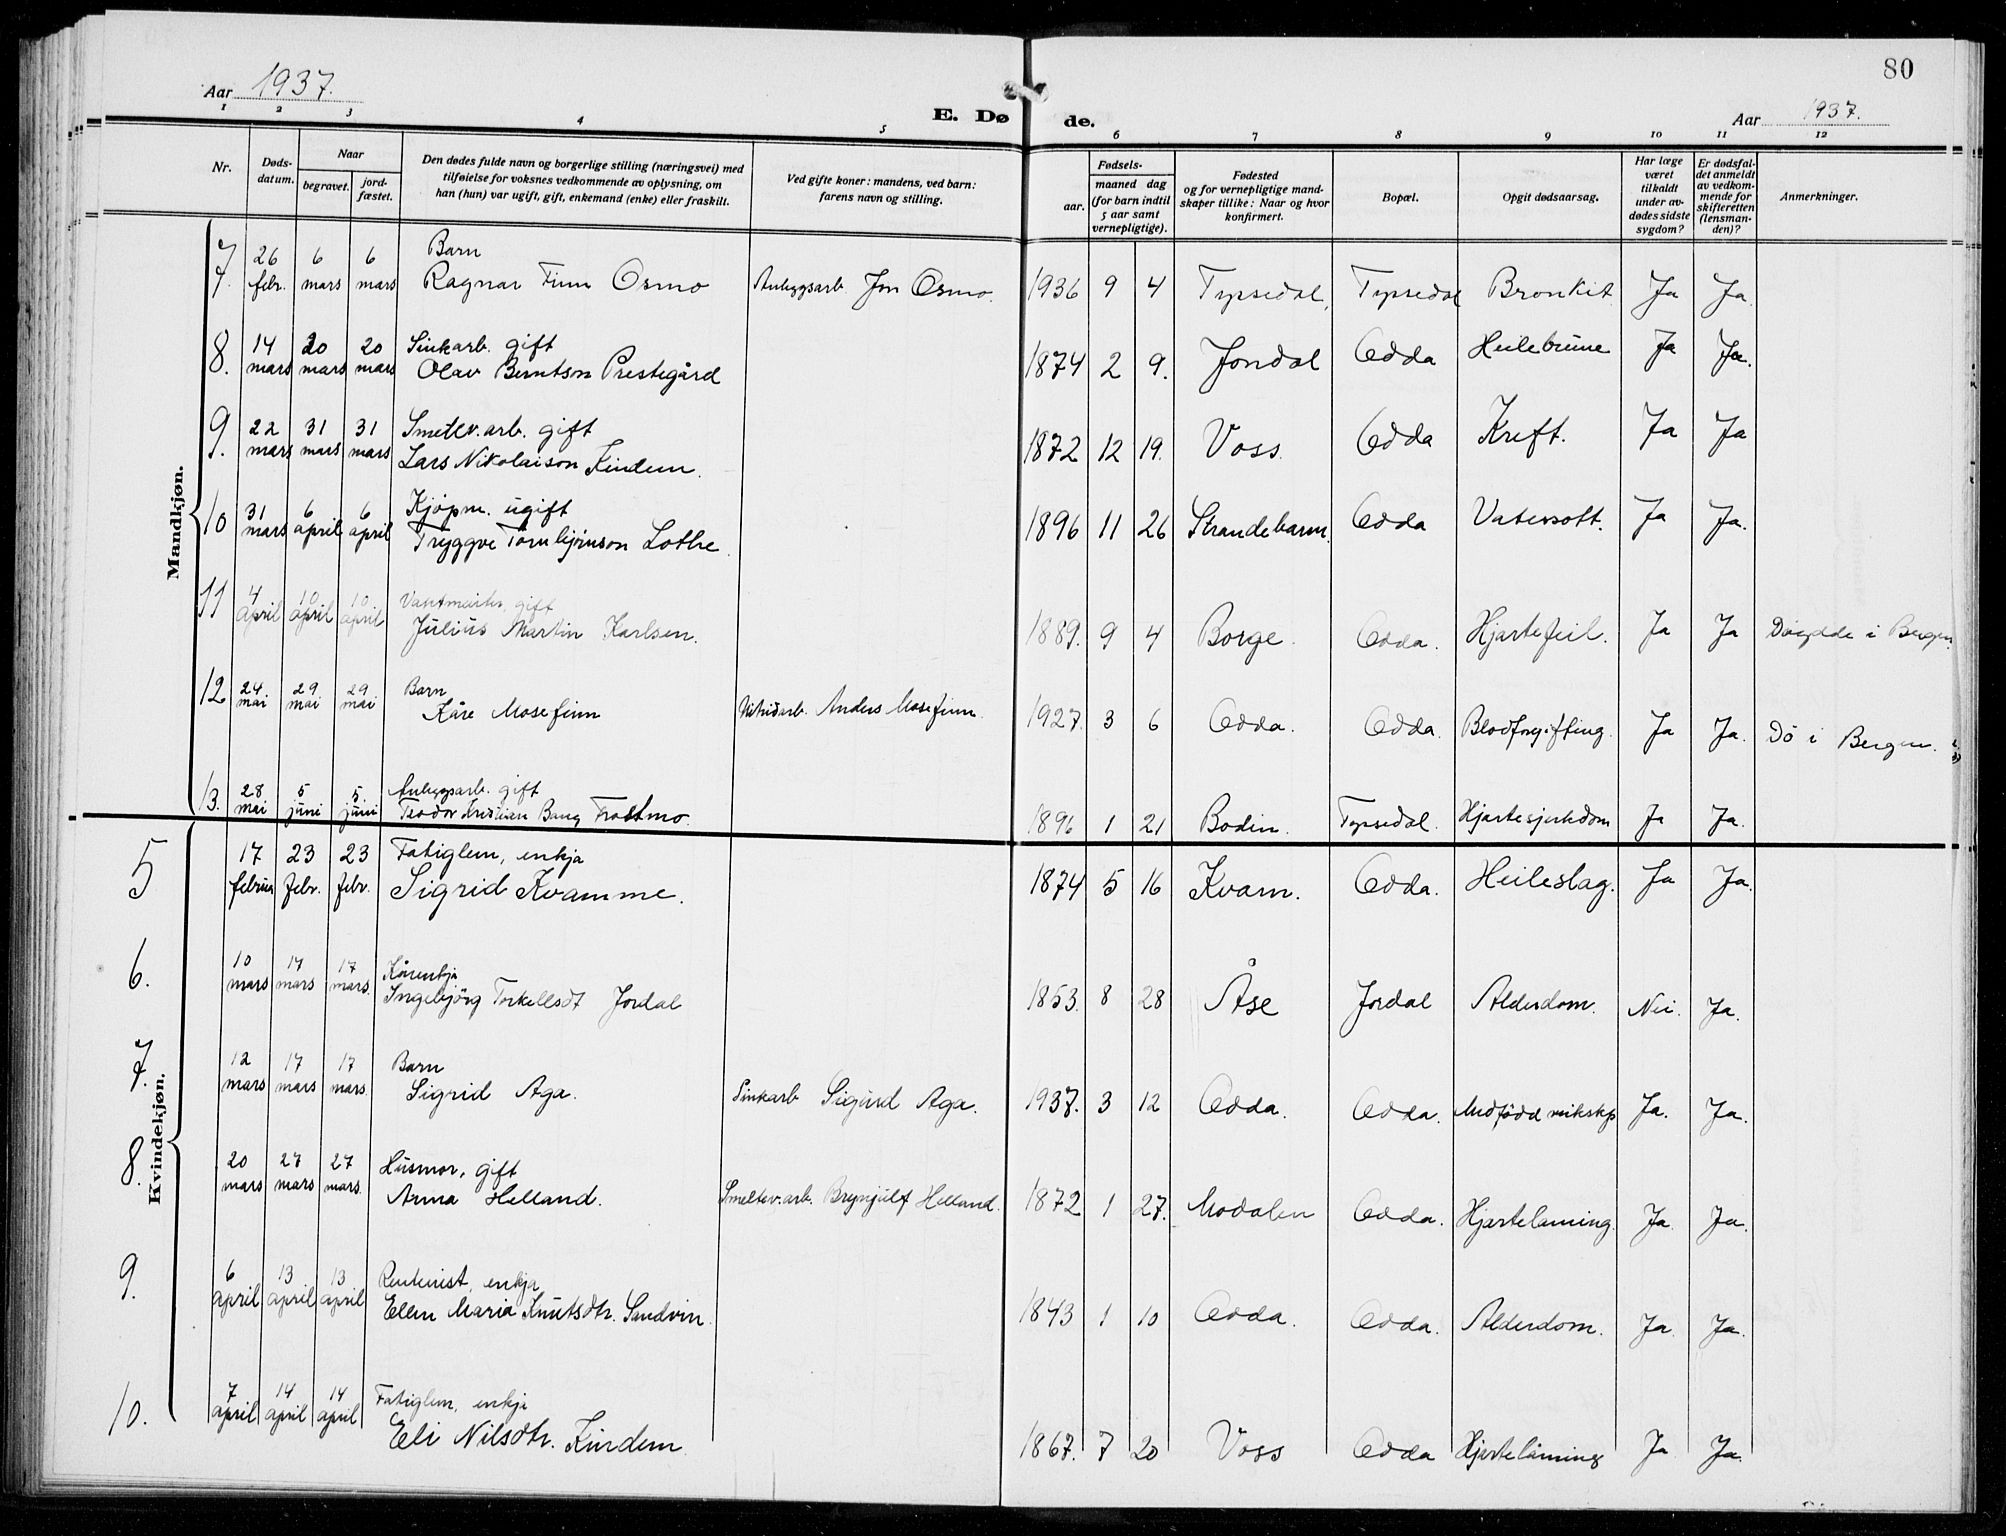 Aar 1937.
E. Dø
de.
80
Aar 1937.
1 2 3 4 5 6 7 8 9 10 11 12
Nr.
Døds-
datum.
Naar
begravet.
jord-
fæstet.
Den dødes fulde navn og borgerlige stilling (næringsvei) med
tilføielse for voksnes vedkommende av oplysning, om
han (hun) var ugift, gift, enkemand (enke) eller fraskilt.
Ved gifte koner: mandens, ved barn:
farens navn og stilling.
Fødsels-
aar.
maaned dag
(for barn indtil
5 aar samt
vernepligtige).
Fødested
og for vernepligtige mand-
skaper tillike: Naar og hvor
konfirmert.
Bopæl.
Opgit dødsaarsag.
Har læge
været
tilkaldt
under av-
dødes sidste
sygdom?
Er dødsfal-
det anmeldt
av vedkom-
mende for
skifteretten
(lensman-
den)?
Anmerkninger.
Mandkjøn.
7. 26 6 6 Barn
febr. mars mars Ragnar Finn Osmo Anleggsarb. Jon Osmo. 1936 9 4 Tyssedal, Tyssedal Bronkit Ja Ja.
8. 14 20 20 Sinkarb. gift
mars mars mars Olav Berntson Prestegård 1874 2 9. Jondal Odda Heilebrune Ja Ja.
9. 22 31 31 Smeltev.arb. gift
mars mars mars Lars Nikolaison Kindem. 1872 12 19. Voss. Odda Kreft. Ja Ja
10 31 6 6 Kjøpm. ugift
mars april april Tryggve Tornbjørnson Lothe. 1896 11 26 Strandebarm. Odda Vatersott. Ja Ja.
11 4 10 10 Vaktmeister, gift
april april april Julius Martin Karlsen. 1889. 9 4 Borge. Odda. Hjartefeil. Ja Ja Døydde i Bergen.
12 24 29 29 Barn
mai mai mai Kåre Mosefinn Nitridarb. Anders Mosefinn. 1927. 3 6 Odda. Odda. Blodforgifting. Ja Ja. Dø i Bergen.
13. 28 5 5 Anleggsarb. gift
mai juni juni Teodor Kristian Bang Frostmo. 1896 1 21 Bodin. Tyssedal. Hjartesjukdom Ja Ja.
Kvindekjøn.
5 17 23 23 Fatiglem, enkja
februar febr. febr. Sigrid Kvamme. 1874 5 16 Kvam. Odda. Heileslag. Ja Ja.
6. 10 17 17 Kårenkja
mars mars mars. Ingebjörg Torkellsdt Jordal 1853. 8 28 Åse Jordal Alderdom. Nei. Ja.
7. 12 17 17 Barn
mars mars mars. Sigrid Aga. Sinkarb Sigurd Aga. 1937. 3 12 Odda. Odda. Medfödd veikskp Ja. Ja.
8. 20 27 27 Husmor, gift
mars mars mars. Anna Helland. Smeltev.arb. Brynjulf Helland. 1872 1 27. Modalen Odda. Hjartelaming. Ja. Ja.
9. 6 13 13 Rentenist, enkja
april april april Ellen Maria Knutsdtr. Sandvin. 1843 1 10 Odda. Odda. Alderdom. Ja. Ja.
10. 7 14 14 Fatiglem, enkja
april april april Eli Nilsdtr. Kindem. 1867. 7 20 Voss Odda Hjartelåming Ja Ja.